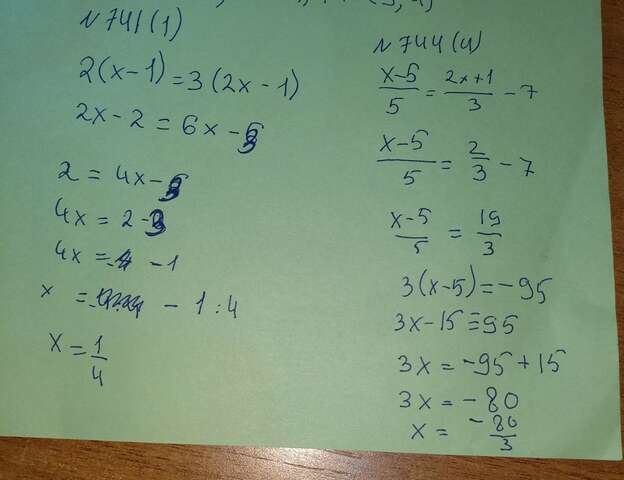 N741(1)
2(x-1)=3(2x-1)
2x-2=6x-3
2=4x-3
4x=2-3
4x= -1
x = -1:4
x=1/4
N744(4)
x-5/5=2x+1/3-7
x-5/5=2/3-7
x-5/5=19/3
3(x-5)=-95
3x-15=95
3x=-95+15
3x=-80
x=-80/3